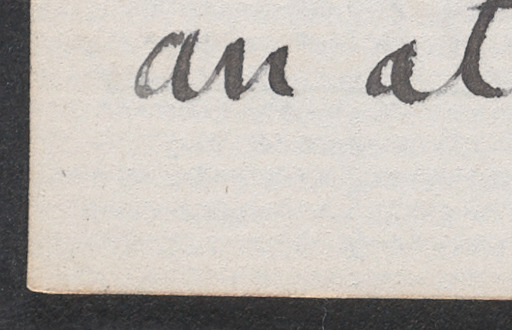 an at